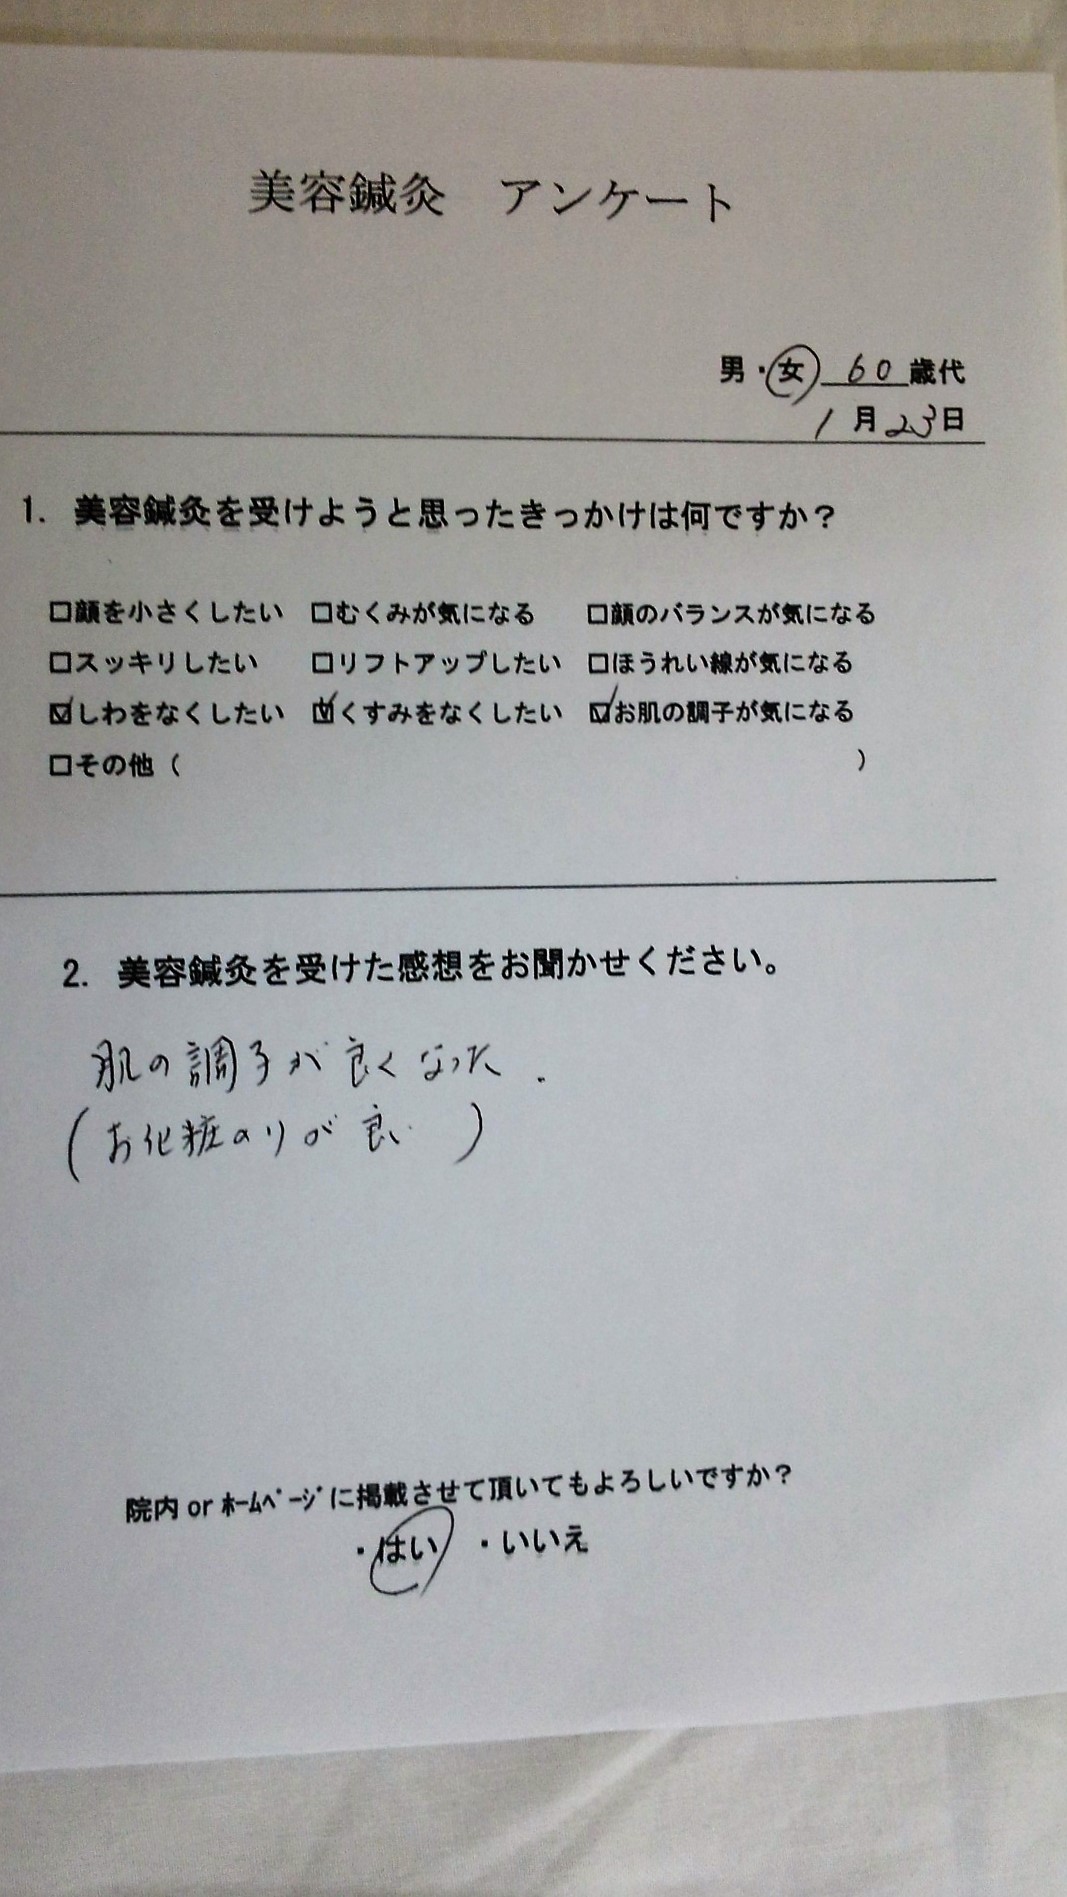 美容鍼灸 アンケート
男・女 60歳代
1月23日
1. 美容鍼灸を受けようと思ったきっかけは何ですか？
□顔を小さくしたい □むくみが気になる □顔のバランスが気になる
□スッキリしたい □リフトアップしたい □ほうれい線が気になる
☑しわをなくしたい ☑くすみをなくしたい ☑お肌の調子が気になる
□その他（ ）
2. 美容鍼灸を受けた感想をお聞かせください。
肌の調子が良くなった.
(お化粧のりが良い)
院内 or ﾎｰﾑﾍﾟｰｼﾞに掲載させて頂いてもよろしいですか？
・はい ・いいえ